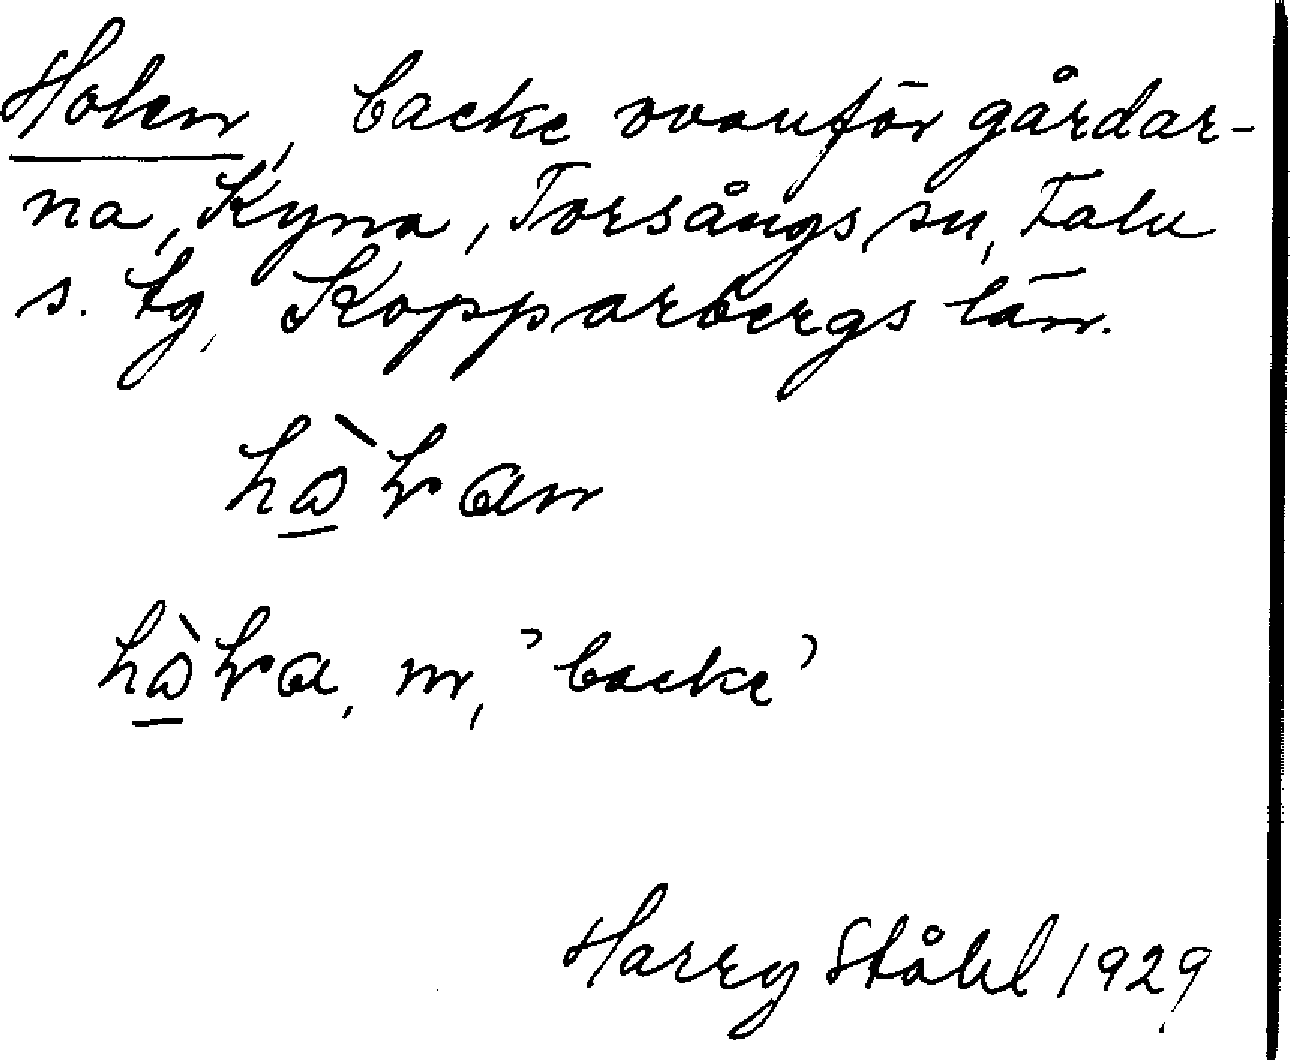 Holen, backe ovanför gårdar-
na, Kyna, Torsångs sn, Falu
s. tg, Kopparbergs län.
m, 'backe'
Harry Ståhl 1929